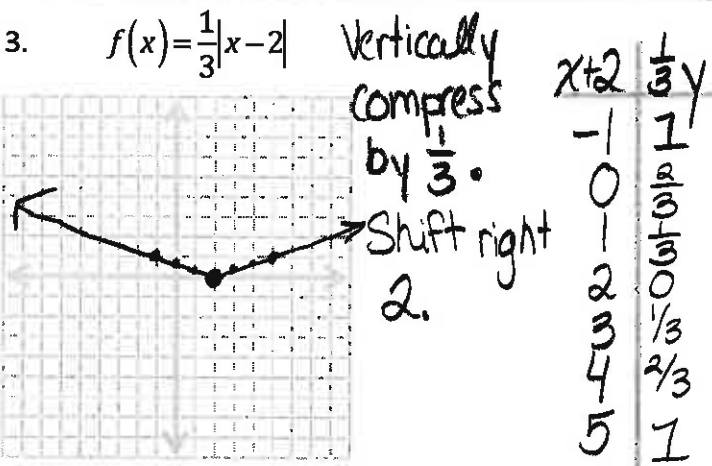 3. f(x)=1/3|x-2|
Vertically
compress
by 1/3.
Shift right
2.
x+2 1/3y
-1 1
0 2/3
1 1/3
2 0
3 1/3
4 2/3
5 1